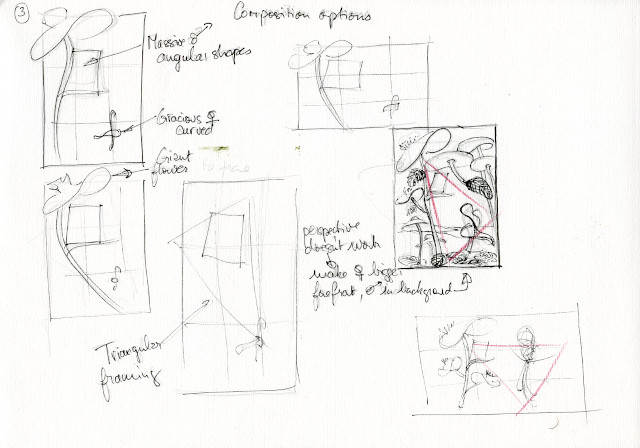 ③
Composition options
Massive ♂
angular shapes
Gracious ♀
curved
Giant
flower
perspective
doesn't work
make ♀ bigger
forefront, ♂ in background
Triangular
framing